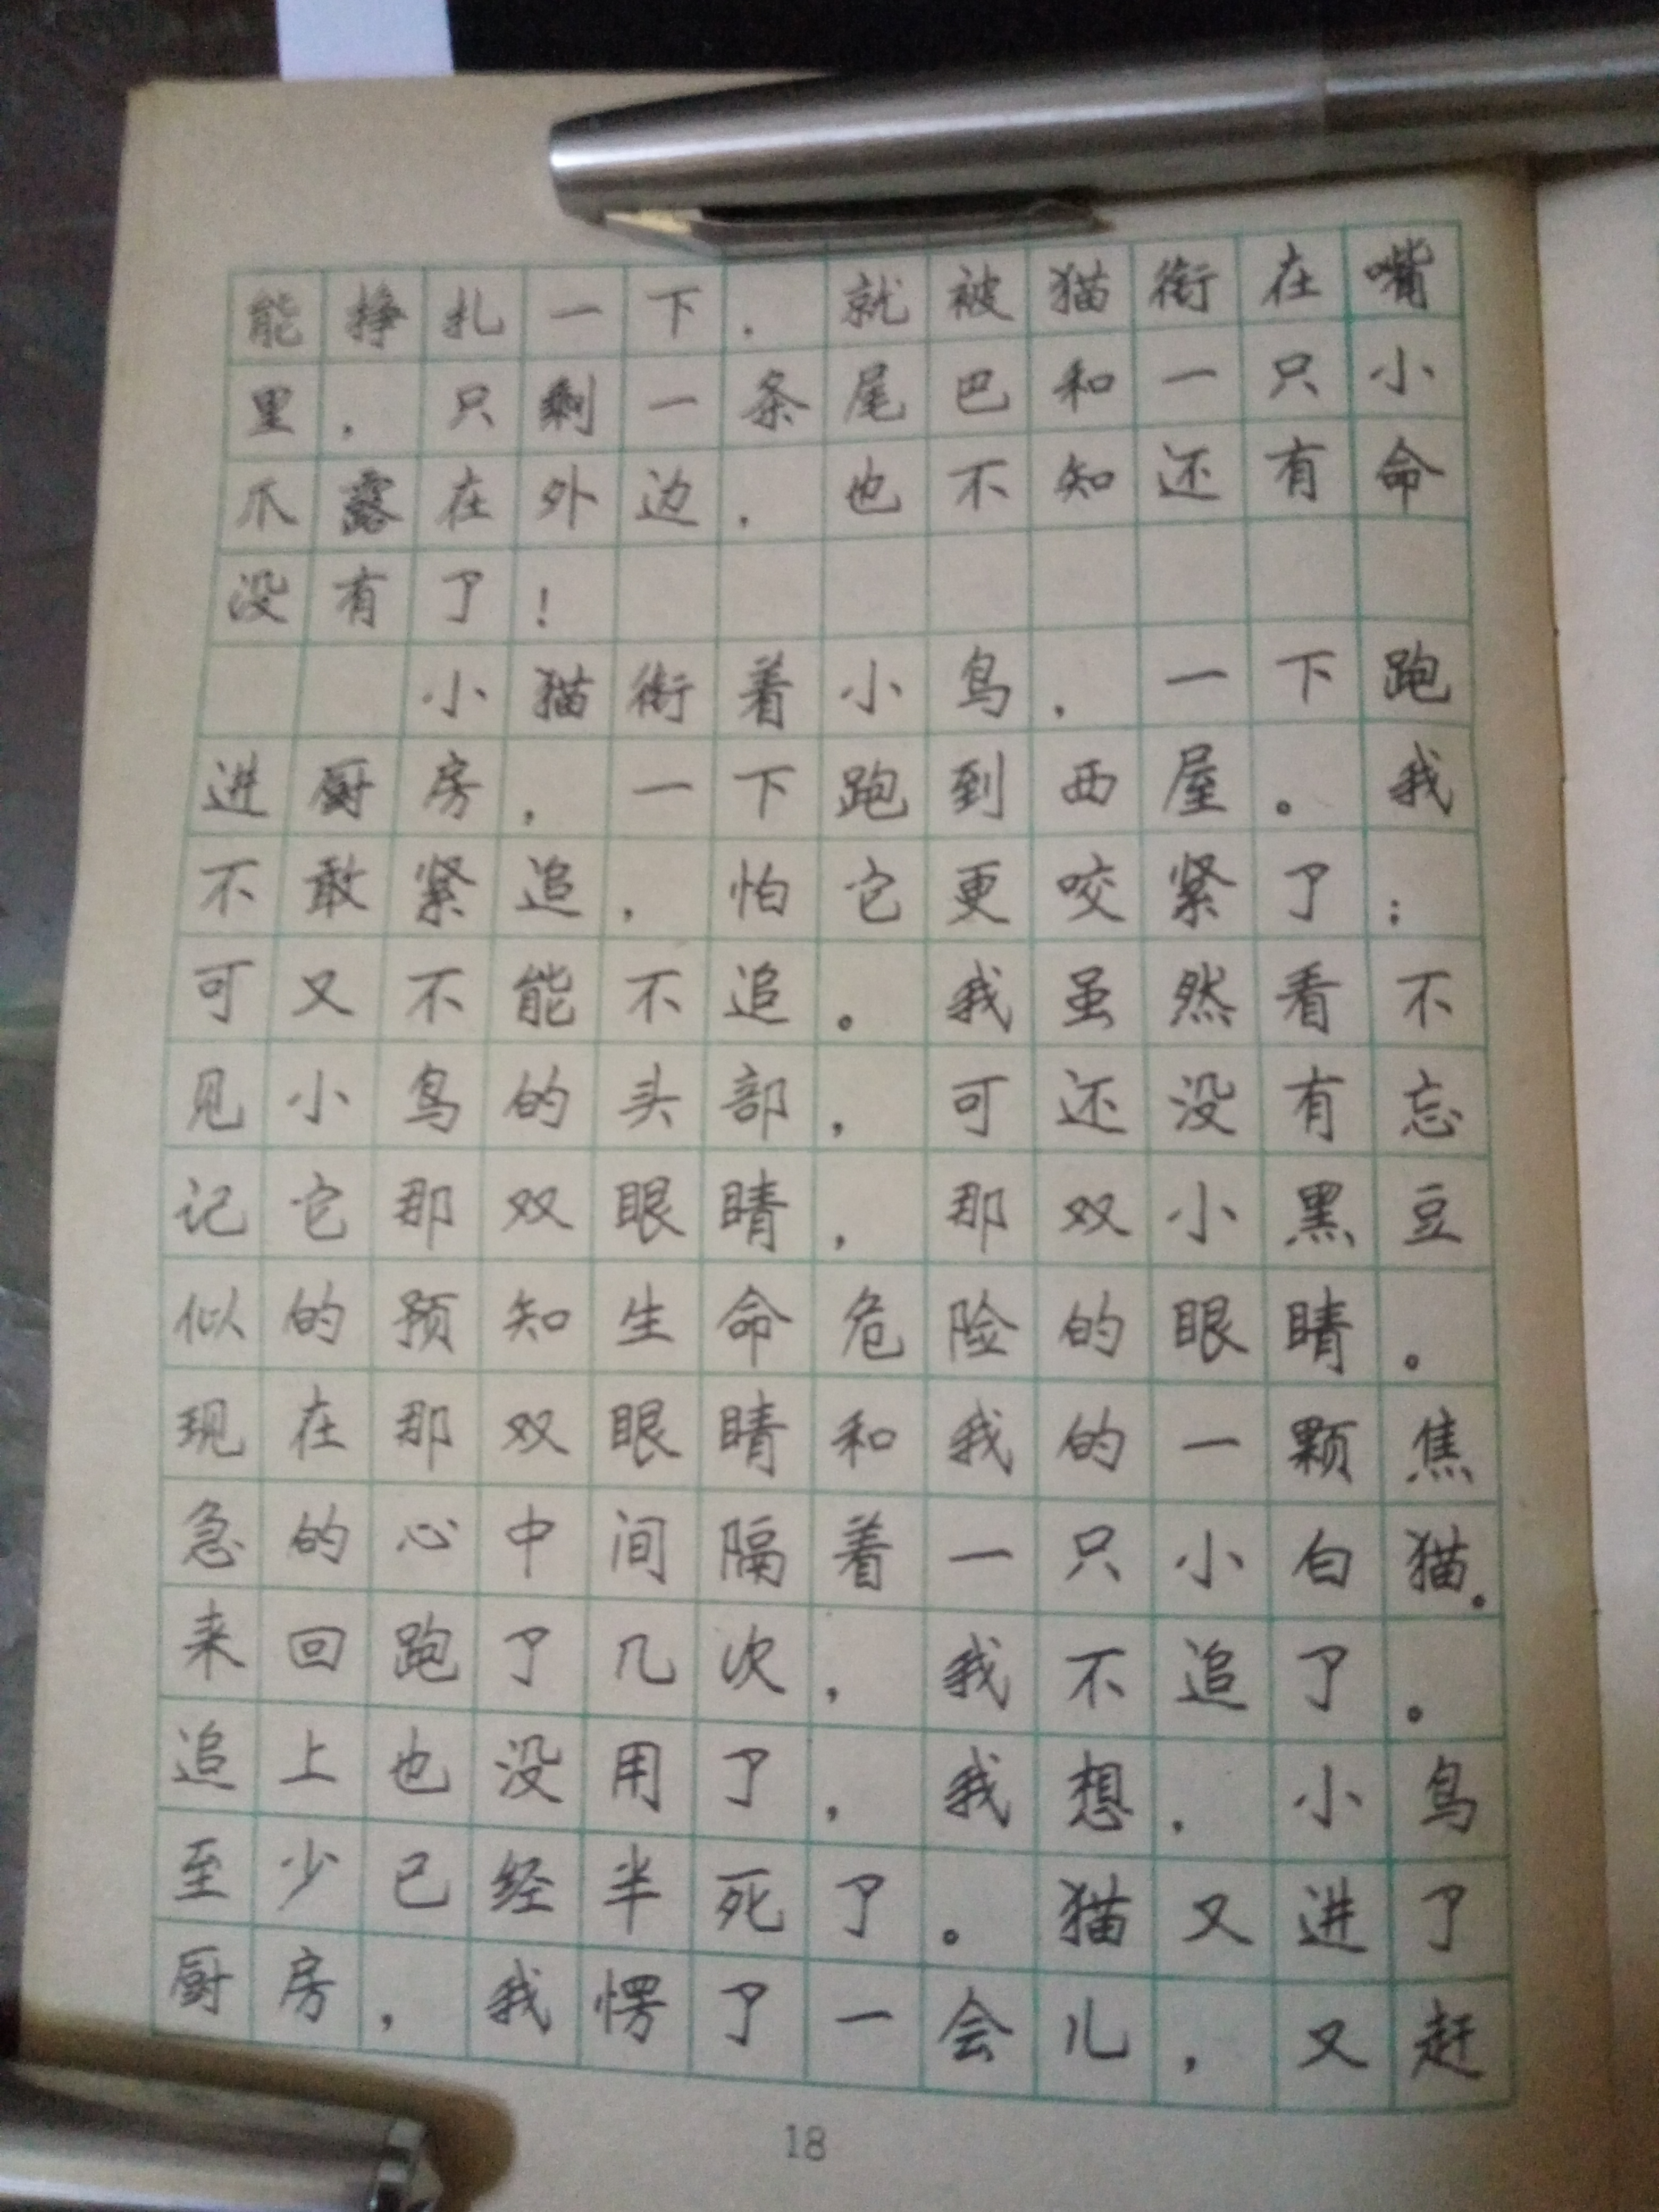 能挣扎一下，就被猫衔在嘴
里，只剩一条尾巴和一只小
爪露在外边，也不知还有命
没有了！
小猫衔着小鸟，一下跑
进厨房，一下跑到西屋。我
不敢紧追，怕它更咬紧了；
可又不能不追。我虽然看不
见小鸟的头部，可还没有忘
记它那双眼睛，那双小黑豆
似的预知生命危险的眼睛。
现在那双眼睛和我的一颗焦
急的心中间隔着一只小白猫。
来回跑了几次，我不追了。
追上也没用了，我想，小鸟
至少已经半死了。猫又进了
厨房，我愣了一会儿，又赶
18